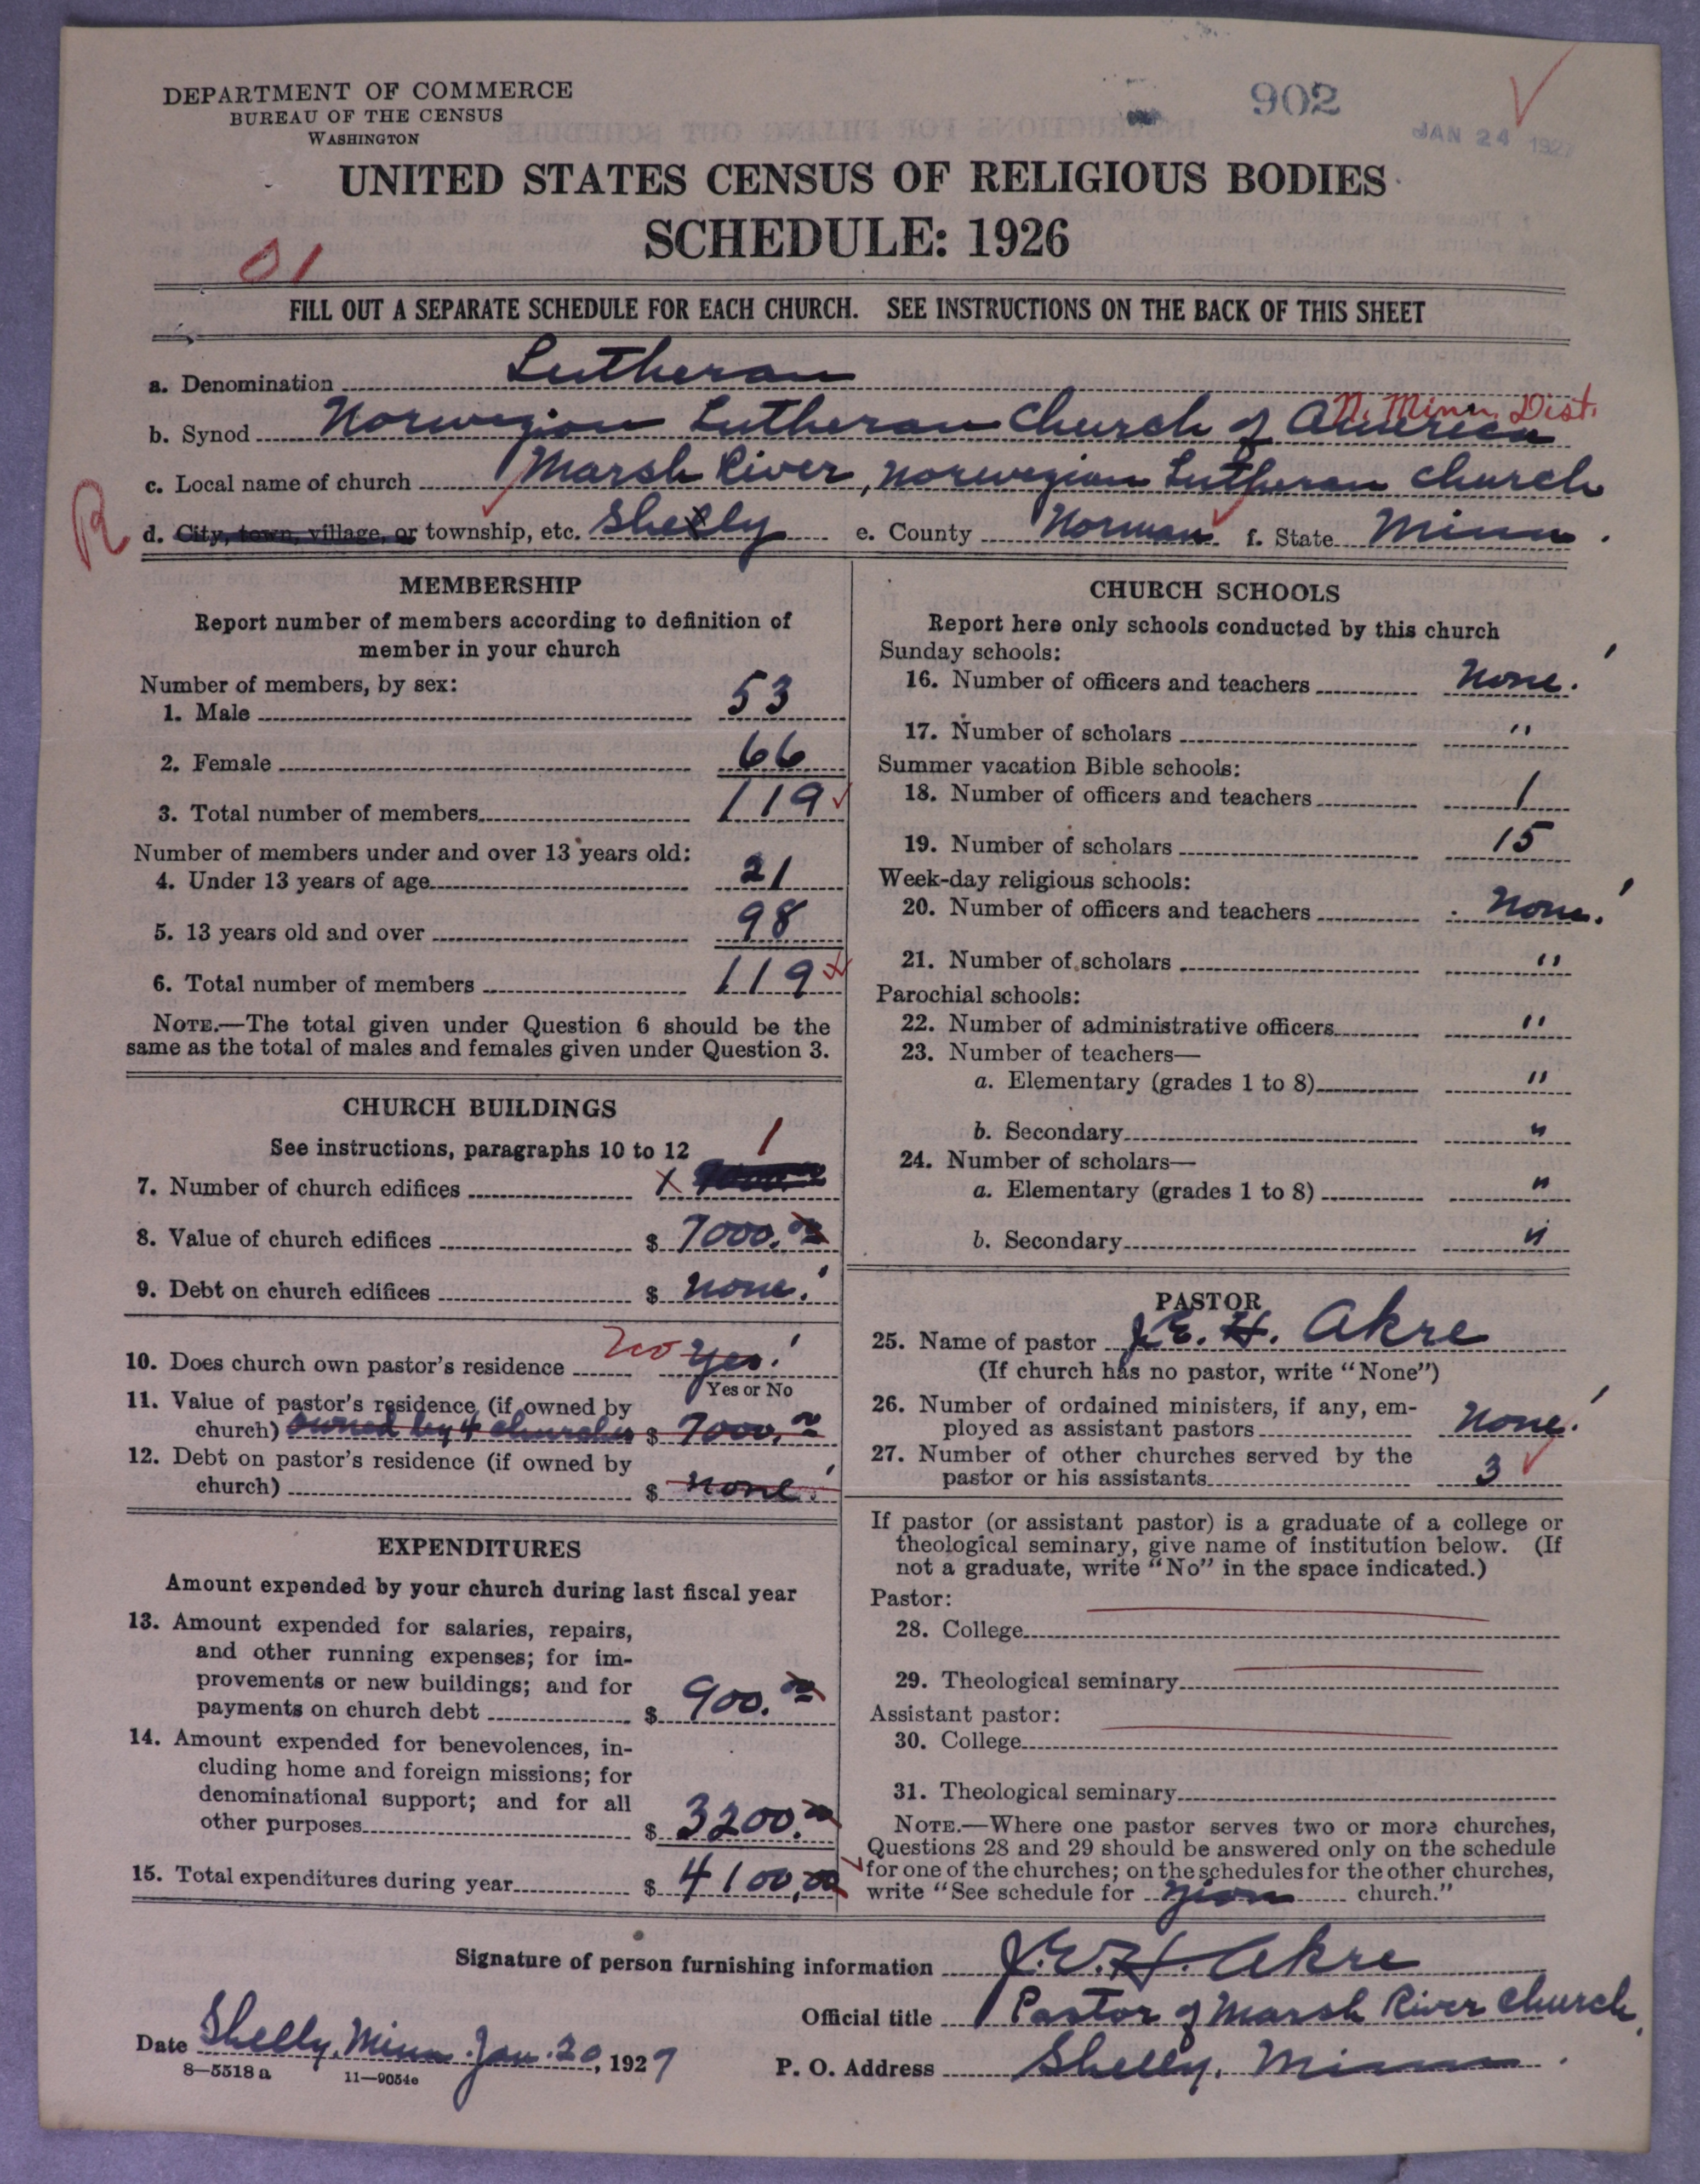 DEPARTMENT OF COMMERCE
BUREAU OF THE CENSUS
WASHINGTON
902
JAN 24 1927
UNITED STATES CENSUS OF RELIGIOUS BODIES
SCHEDULE: 1926
01
FILL OUT A SEPARATE SCHEDULE FOR EACH CHURCH. SEE INSTRUCTIONS ON THE BACK OF THIS SHEET
a. Denomination Lutheran
N. Minn. Dist.
b. Synod Norwegian Lutheran Church of America
c. Local name of church Marsh River, Norwegian Lutheran Church
R
d. City, town, village, or township, etc. Shelly e. County Norman f. State Minn.
MEMBERSHIP
Report number of members according to definition of
member in your church
Number of members, by sex:
1. Male 53
2. Female 66
3. Total number of members 119
Number of members under and over 13 years old:
4. Under 13 years of age 21
5. 13 years old and over 98
6. Total number of members 119
NOTE.—The total given under Question 6 should be the
same as the total of males and females given under Question 3.
CHURCH BUILDINGS
See instructions, paragraphs 10 to 12
7. Number of church edifices 1
8. Value of church edifices $ 7000.00
9. Debt on church edifices $ None.
10. Does church own pastor's residence No Yes.
Yes or No
11. Value of pastor's residence (if owned by
church) owned by 4 churches $ 7000.00
12. Debt on pastor's residence (if owned by
church) $ None.
EXPENDITURES
Amount expended by your church during last fiscal year
13. Amount expended for salaries, repairs,
and other running expenses; for im-
provements or new buildings; and for
payments on church debt $ 900.00
14. Amount expended for benevolences, in-
cluding home and foreign missions; for
denominational support; and for all
other purposes $ 3200.00
15. Total expenditures during year $ 4100.00
CHURCH SCHOOLS
Report here only schools conducted by this church
Sunday schools:
16. Number of officers and teachers None.
17. Number of scholars "
Summer vacation Bible schools:
18. Number of officers and teachers 1
19. Number of scholars 15
Week-day religious schools:
20. Number of officers and teachers None.
21. Number of scholars "
Parochial schools:
22. Number of administrative officers "
23. Number of teachers—
a. Elementary (grades 1 to 8) "
b. Secondary "
24. Number of scholars—
a. Elementary (grades 1 to 8) "
b. Secondary "
PASTOR
25. Name of pastor J.E.H. Akre
(If church has no pastor, write "None")
26. Number of ordained ministers, if any, em-
ployed as assistant pastors None.
27. Number of other churches served by the
pastor or his assistants 3
If pastor (or assistant pastor) is a graduate of a college or
theological seminary, give name of institution below. (If
not a graduate, write "No" in the space indicated.)
Pastor:
28. College
29. Theological seminary
Assistant pastor:
30. College
31. Theological seminary
NOTE.—Where one pastor serves two or more churches,
Questions 28 and 29 should be answered only on the schedule
for one of the churches; on the schedules for the other churches,
write "See schedule for Zion church."
Signature of person furnishing information J.E.H. Akre
Official title Pastor of Marsh River Church.
Date Shelly, Minn. Jan. 20, 1927
P. O. Address Shelly, Minn.
8—5518 a 11—9054e